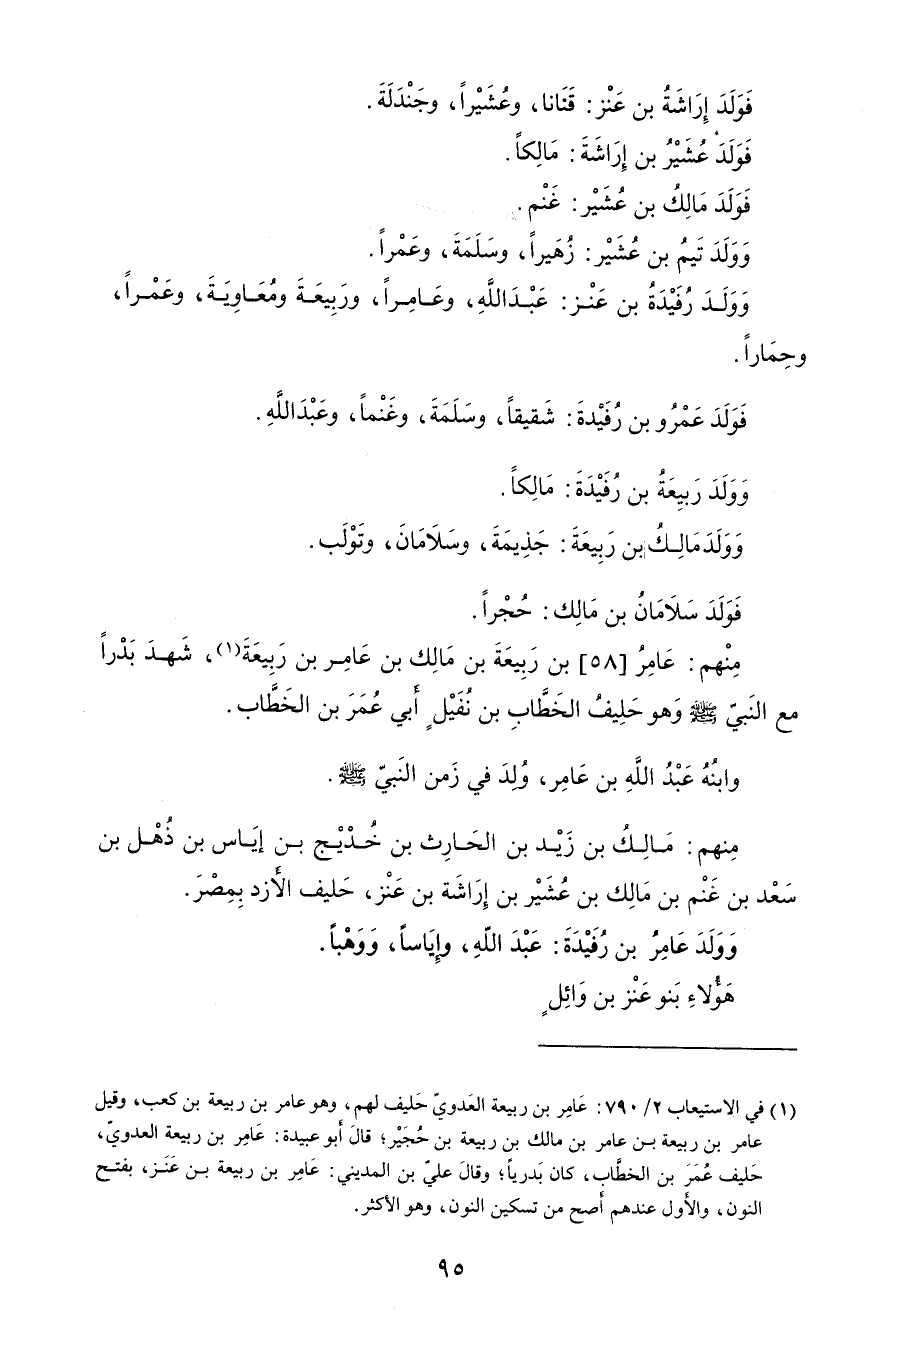 فَوَلَدَ إِرَاشَةُ بن عَنْز: قَنَانا، وعُشَيْراً، وجَنْدَلَةَ.
فَوَلَدَ عُشَيْرُ بن إِرَاشَةَ: مَالِكاً.
فَوَلَدَ مَالِكُ بن عُشَيْر: غَنْم.
وَوَلَدَ تَيمُ بن عُشَيْر: زُهَيراً، وسَلَمَةَ، وعَمْراً.
وَوَلَـدَ رُفَيْدَةُ بن عَنْـز: عَبْـدَاللَّهِ، وعَـامِـراً، ورَبِيعَـةَ ومُعَـاوِيَـةَ، وعَمْـراً،
وحِمَاراً.
فَوَلَدَ عَمْرُو بن رُفَيْدةَ: شَقيقاً، وسَلَمَةَ، وغَنْماً، وعَبْدَاللَّهِ.
وَوَلَدَ رَبِيعَةُ بن رُفَيْدَةَ: مَالِكاً.
وَوَلَدَ مَالِـكُ بن رَبِيعَةَ: جَذِيمَةَ، وسَلَامَانَ، وتَوْلَب.
فَوَلَدَ سَلَامَانُ بن مَالِك: حُجْراً.
مِنْهم: عَامِرُ [٥٨] بن رَبِيعَةَ بن مَالِك بن عَامِـر بن رَبِيعَةَ(١)، شَهـدَ بَدْراً
مع النَبيّ ﷺ وَهو حَلِيفُ الخَطَّابِ بن نُفَيْلٍ أَبي عُمَرَ بن الخَطَّاب.
وابنُهُ عَبْدُ اللَّهِ بن عَامِر، وُلِدَ في زَمن النَبيّ ﷺ.
مِنهم: مَـالِـكُ بن زَيْـد بن الحَـارِث بن خُـدْيْـج بـن إيَـاس بن ذُهْـل بن
سَعْد بن غَنْم بن مَالِك بن عُشَيْر بن إِرَاشَة بن عَنْز، حَليف الأَزد بِمِصْرَ.
وَوَلَدَ عَامِرُ بن رُفَيْدَةَ: عَبْدَ اللّهِ، وإِيَاساً، وَوَهْباً.
هَؤُلَاءِ بَنو عَنْز بن وَائِلٍ
(١) في الاستيعاب ٢/ ٧٩٠: عَامِر بن رَبيعة العَدويّ حَليف لهم، وهو عامر بن ربيعة بن كعب، وقيل
عامر بن ربيعة بـن عامر بن مالك بن ربيعة بن حُجَيْر؛ قالَ أَبو عبيدة: عَامِر بن رَبيعة العدويّ،
حَليف عُمَرَ بن الخطَّاب، كان بَدرياً؛ وقالَ عليّ بن المديني: عَامِر بن ربيعة بـن عَنَـز، بفتـح
النون، والأول عندهم أَصح من تسكين النون، وهو الأكثر.
٩٥